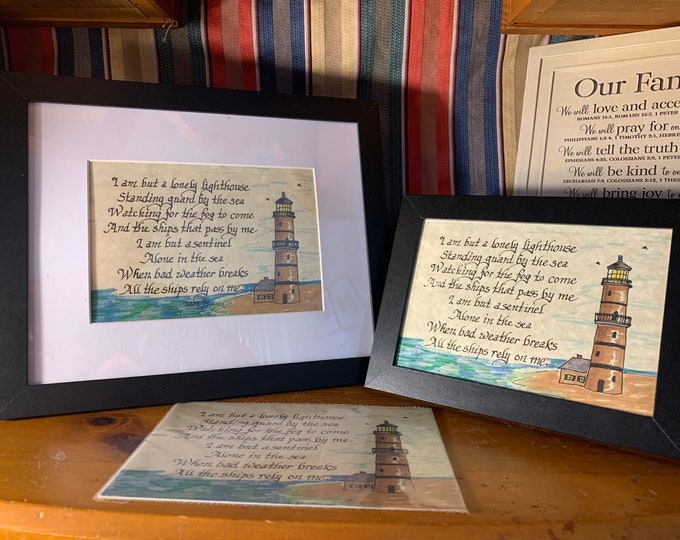 I am but a lonely lighthouse
Standing guard by the sea
Watching for the fog to come
And the ships that pass by me
I am but a sentinel
Alone in the sea
When bad weather breaks
All the ships rely on me.
I am but a lonely lighthouse
Standing guard by the sea
Watching for the fog to come
And the ships that pass by me
I am but a sentinel
Alone in the sea
When bad weather breaks
All the ships rely on me.
I am but a lonely lighthouse
Standing guard by the sea
Watching for the fog to come
And the ships that pass by me
I am but a sentinel
Alone in the sea
When bad weather breaks
All the ships rely on me.
Our Fam
We will love and acce
ROMANS 14:1, ROMANS 15:2, 1 PETER
We will pray for on
PHILIPPIANS 1:3-4, 1 TIMOTHY 2:1, HEBRE
We will tell the truth
EPHESIANS 4:25, COLOSSIANS 3:9, 1 PETE
We will be kind to on
ZECHARIAH 7:9, COLOSSIANS 3:12, 1 THES
We will bring joy to